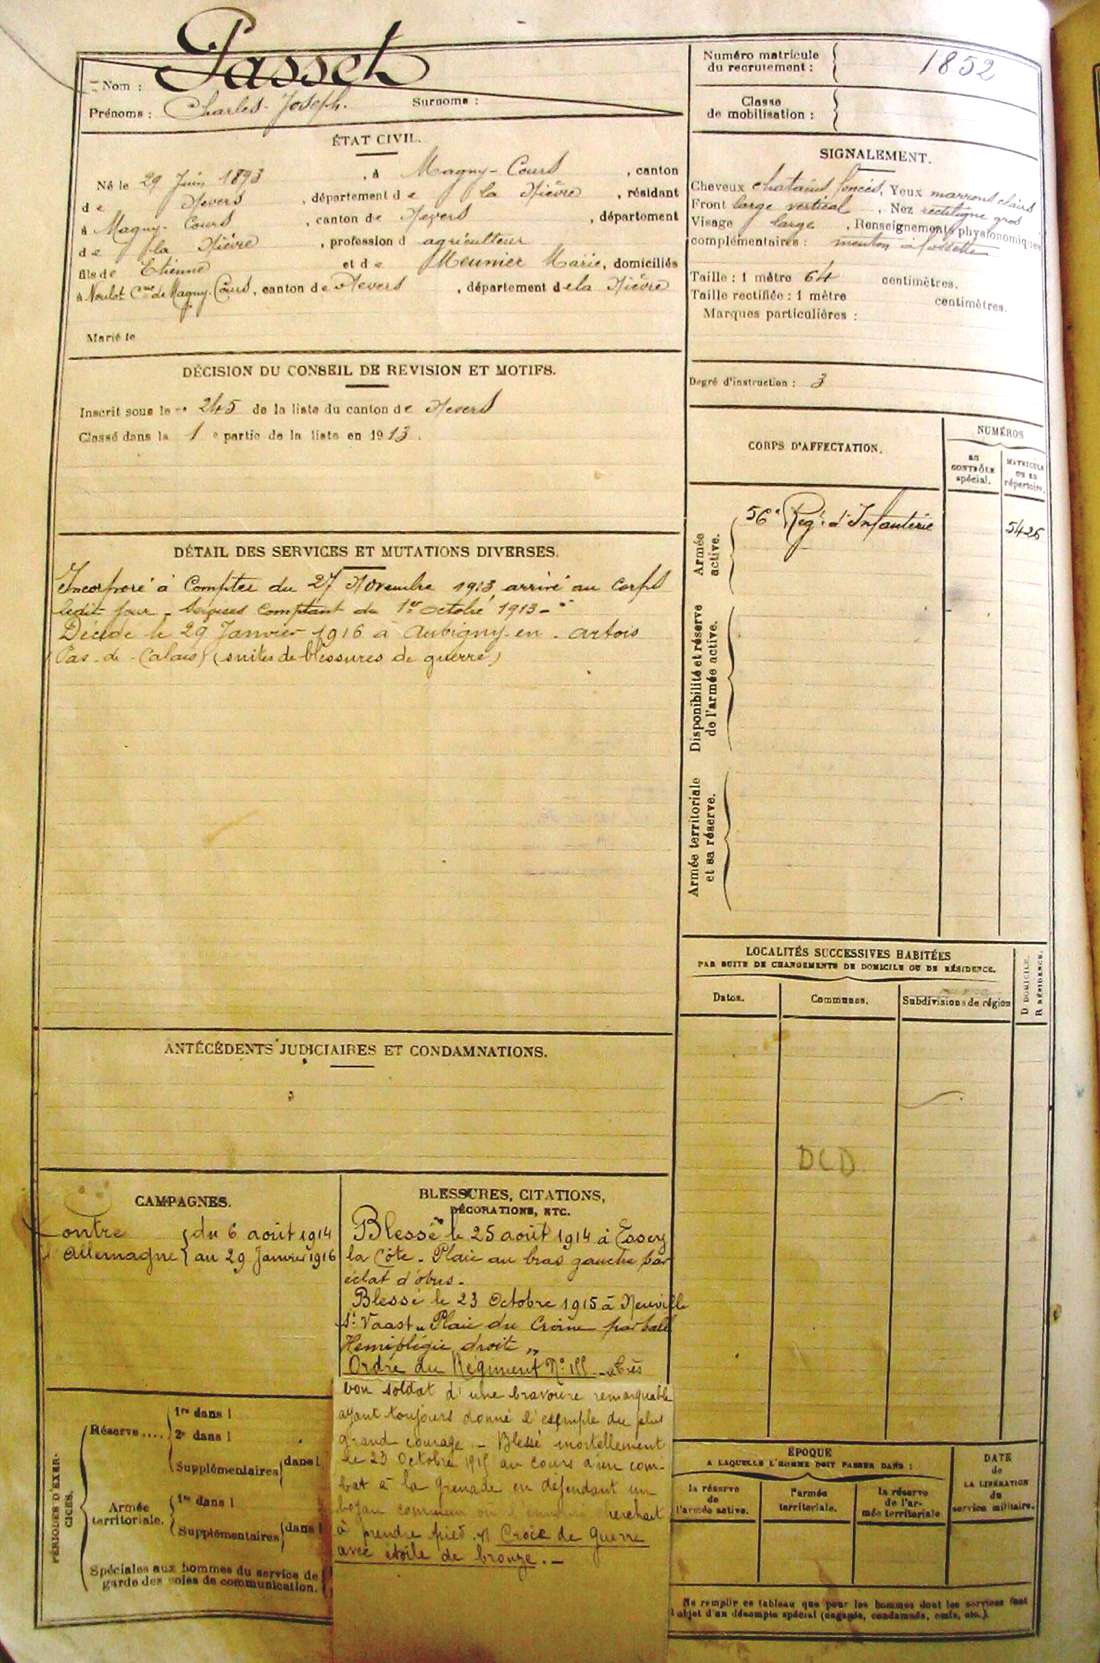 Nom : Passet
Prénoms : Charles-Joseph. Surnoms :
ÉTAT CIVIL.
Né le 29 Juin 1893, à Magny-Cours, canton
de Nevers, département de la Nièvre, résidant
à Magny-Cours, canton de Nevers, département
de la Nièvre, profession d agriculteur
fils de Etienne et de Meunier Marie, domiciliés
à Cne de Magny-Cours, canton de Nevers, département de la Nièvre
Marié le
DÉCISION DU CONSEIL DE REVISION ET MOTIFS.
Inscrit sous le n° 245 de la liste du canton de Nevers
Classé dans la 1e partie de la liste en 1913.
DÉTAIL DES SERVICES ET MUTATIONS DIVERSES.
Incorporé à Compter du 27 Novembre 1913, arrivé au Corps
ledit jour - Services Comptant du 1er octobre 1913 -
Décédé le 29 Janvier 1916 à Aubigny-en-Artois
(Pas-de-Calais) (suites de blessures de guerre)
ANTÉCÉDENTS JUDICIAIRES ET CONDAMNATIONS.
CAMPAGNES.
Contre { du 6 août 1914
l'Allemagne { au 29 Janvier 1916
BLESSURES, CITATIONS,
DÉCORATIONS, ETC.
Blessé le 25 août 1914 à Essey
la Côte - Plaie au bras gauche par
éclat d'obus -
Blessé le 23 Octobre 1915 à Neuville
St Vaast - Plaie du Crâne par balle
Hémiplégie droite
Ordre du Régiment N° - très
bon soldat d'une bravoure remarquable
ayant toujours donné l'exemple du plus
grand courage - Blessé mortellement
le 23 Octobre 1915 au cours d'un com-
bat à la grenade en défendant un
boyau commun où l'ennemi cherchait
à prendre pied. Croix de guerre
avec étoile de bronze. -
PÉRIODES D'EXER-
CICES.
Réserve.... 1re dans l
2e dans l
Supplémentaires dans l
Armée
territoriale. 1re dans l
Supplémentaires dans l
Spéciales aux hommes du service de
garde des voies de communication.
Numéro matricule
du recrutement : 1852
Classe
de mobilisation :
SIGNALEMENT.
Cheveux chatains foncés, Yeux marrons clairs
Front large vertical, Nez rectiligne gros
Visage large, Renseignements physionomiques
complémentaires : menton à fossette
Taille : 1 mètre 64 centimètres.
Taille rectifiée : 1 mètre centimètres.
Marques particulières :
Degré d'instruction : 3
CORPS D'AFFECTATION.
NUMÉROS
au
CONTRÔLE
spécial.
MATRICULE
OU AU
répertoire.
Armée
active.
56e Régt d'Infanterie 5425
Disponibilité et réserve
de l'armée active.
Armée territoriale
et sa réserve.
LOCALITÉS SUCCESSIVES HABITÉES
PAR SUITE DE CHANGEMENTS DE DOMICILE OU DE RÉSIDENCE.
Dates. Communes. Subdivisions de région
D DOMICILE.
R RÉSIDENCE.
DCD
ÉPOQUE
A LAQUELLE L'HOMME DOIT PASSER DANS :
la réserve
de
l'armée active.
l'armée
territoriale.
la réserve
de l'ar-
mée territoriale
DATE
de
LA LIBÉRATION
du
service militaire.
Ne remplir ce tableau que pour les hommes dont les services font
l'objet d'un décompte spécial (engagés, condamnés, omis, etc.).